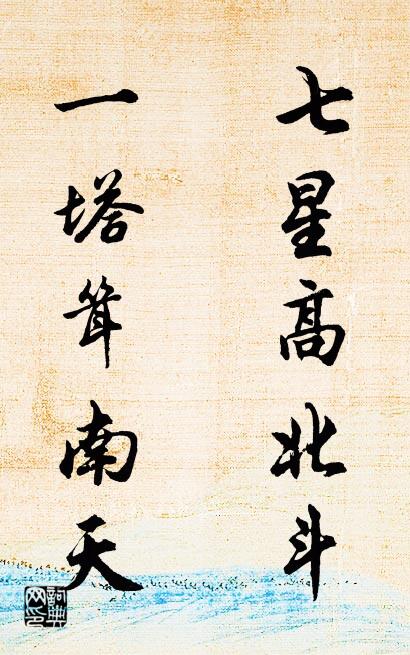 七星高北斗
一塔耸南天
詞典
网印